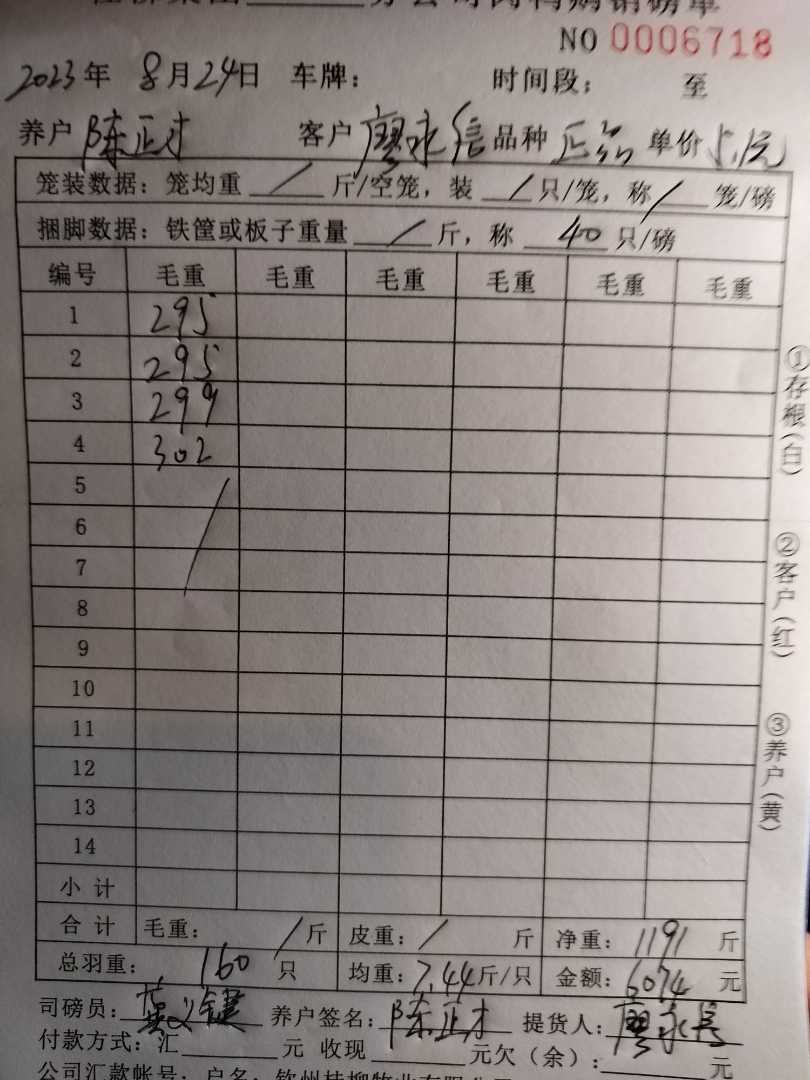 分公司肉鸭购销磅单
NO 0006718
2023年 8月24日 车牌： 时间段： 至
养户 陈正才 客户 廖永信 品种 正品 单价 5.1元
笼装数据：笼均重 / 斤/空笼，装 / 只/笼，称 / 笼/磅
捆脚数据：铁筐或板子重量 / 斤，称 40 只/磅
编号 毛重 毛重 毛重 毛重 毛重 毛重
1 295
2 295
3 299
4 302
5
6
7
8
9
10
11
12
13
14
小 计
合 计 毛重： / 斤 皮重： / 斤 净重： 1191 斤
总羽重： 160 只 均重： 7.44 斤/只 金额： 6074 元
司磅员： 养户签名： 陈正才 提货人： 廖永信
付款方式：汇 元 收现 元欠（余）： 元
公司汇款帐号：户名：钦州桂柳牧业有限公司
①存根（白）
②客户（红）
③养户（黄）